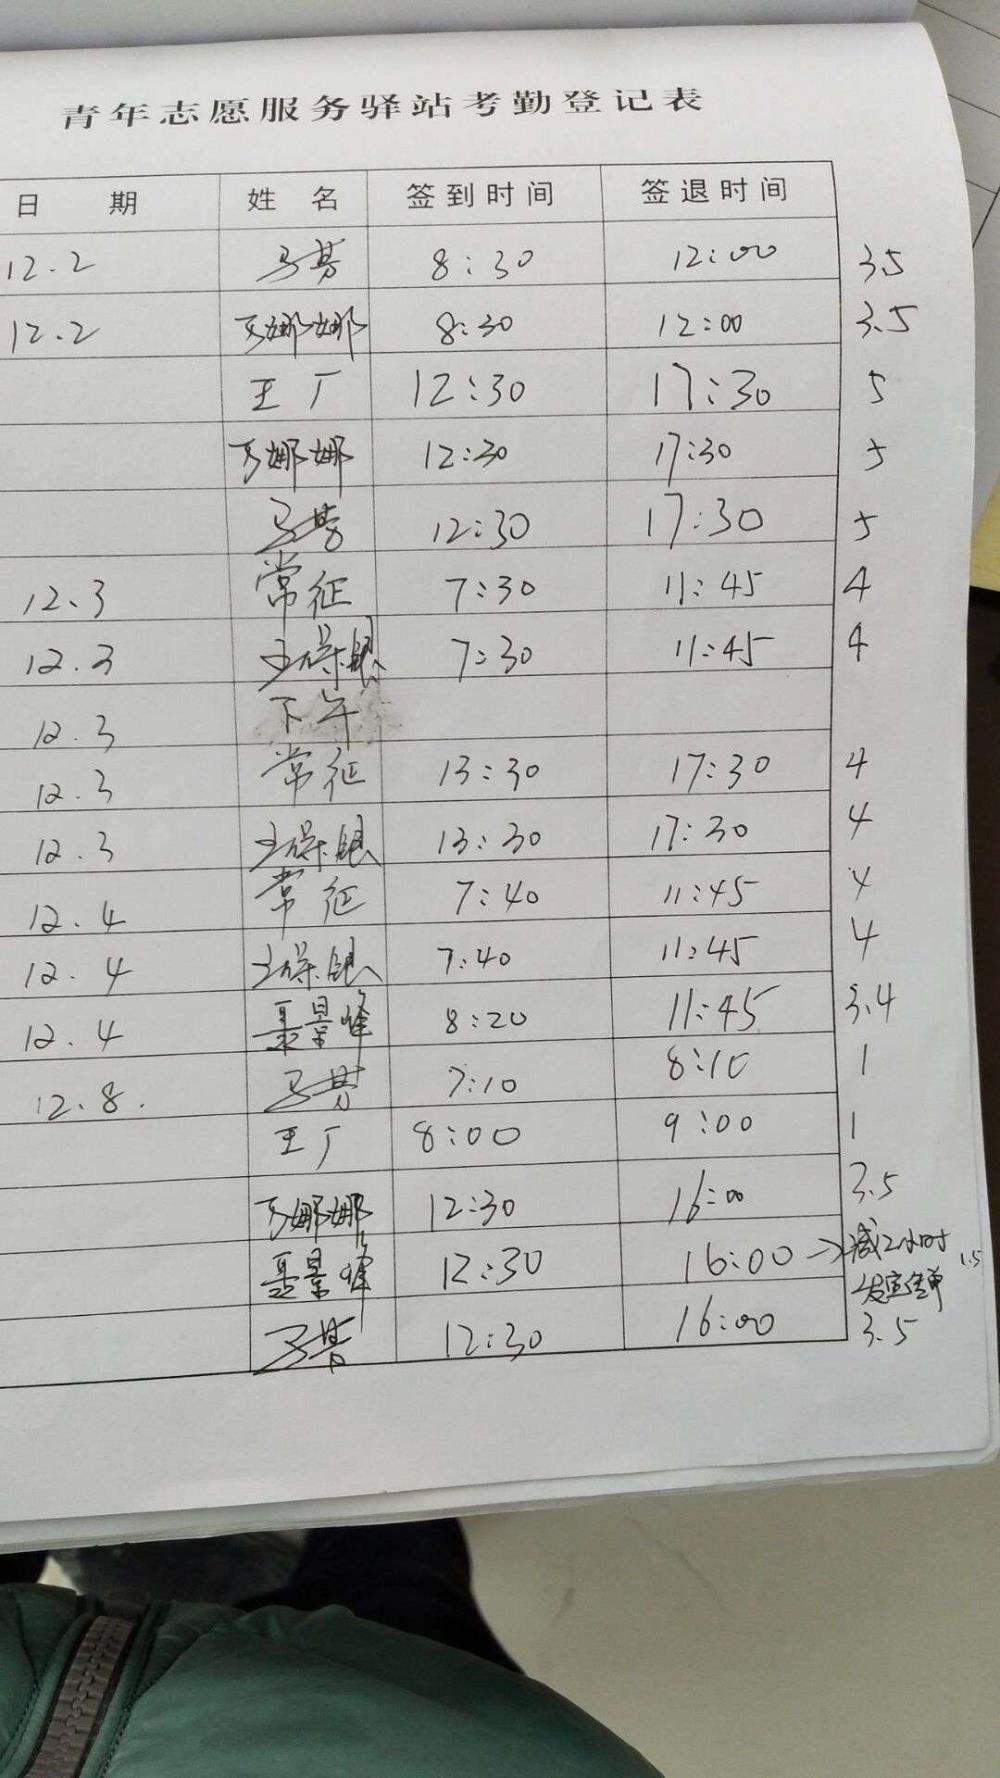 青年志愿服务驿站考勤登记表
日 期 姓 名 签到时间 签退时间
12.2 马芳 8:30 12:00 3.5
12.2 马娜娜 8:30 12:00 3.5
王广 12:30 17:30 5
马娜娜 12:30 17:30 5
马芳 12:30 17:30 5
12.3 常征 7:30 11:45 4
12.3 王保银 7:30 11:45 4
12.3 下午
12.3 常征 13:30 17:30 4
12.3 王保银 13:30 17:30 4
12.4 常征 7:40 11:45 4
12.4 王保银 7:40 11:45 4
12.4 聂景峰 8:20 11:45 3.4
12.8. 马芳 7:10 8:10 1
王广 8:00 9:00 1
马娜娜 12:30 16:00 3.5
聂景峰 12:30 16:00 →减2小时 1.5
发宣传单
马芳 12:30 16:00 3.5